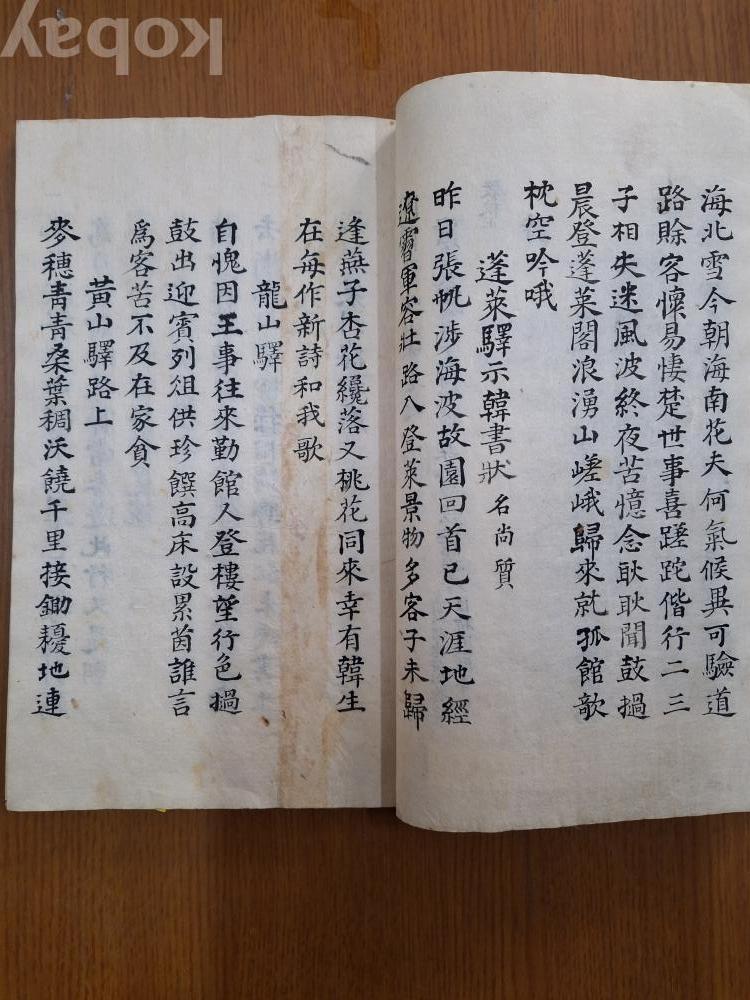 kobay
海北雪今朝海南花夫何氣候異可驗道
路賒客懷易悽楚世事喜蹉跎偕行二三
子相失迷風波終夜苦憶念耿耿聞鼓撾
晨登蓬萊閣浪湧山嵯峨歸來就孤館欹
枕空吟哦
蓬萊驛示韓書狀名尚質
昨日張帆涉海波故園回首已天涯地經
遼霫軍容壯路入登萊景物多客子未歸
逢燕子杏花纔落又桃花同來幸有韓生
在每作新詩和我歌
龍山驛
自愧因王事往來勤館人登樓望行色撾
鼓出迎賓列俎供珍饌高床設累茵誰言
爲客苦不及在家貧
黃山驛路上
麥穗青青桑葉稠沃饒千里接鋤耰地連